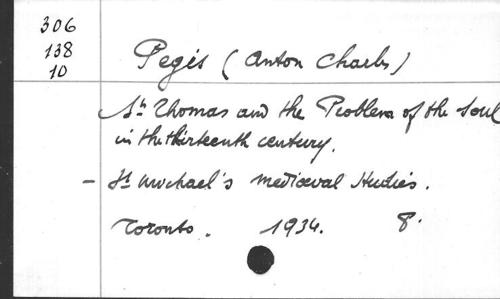 306
138
10
Pegis (Anton Charles)
St Thomas and the Problem of the Soul
in the thirteenth century.
- St Michael's Mediaeval Studies.
Toronto. 1934. 8.